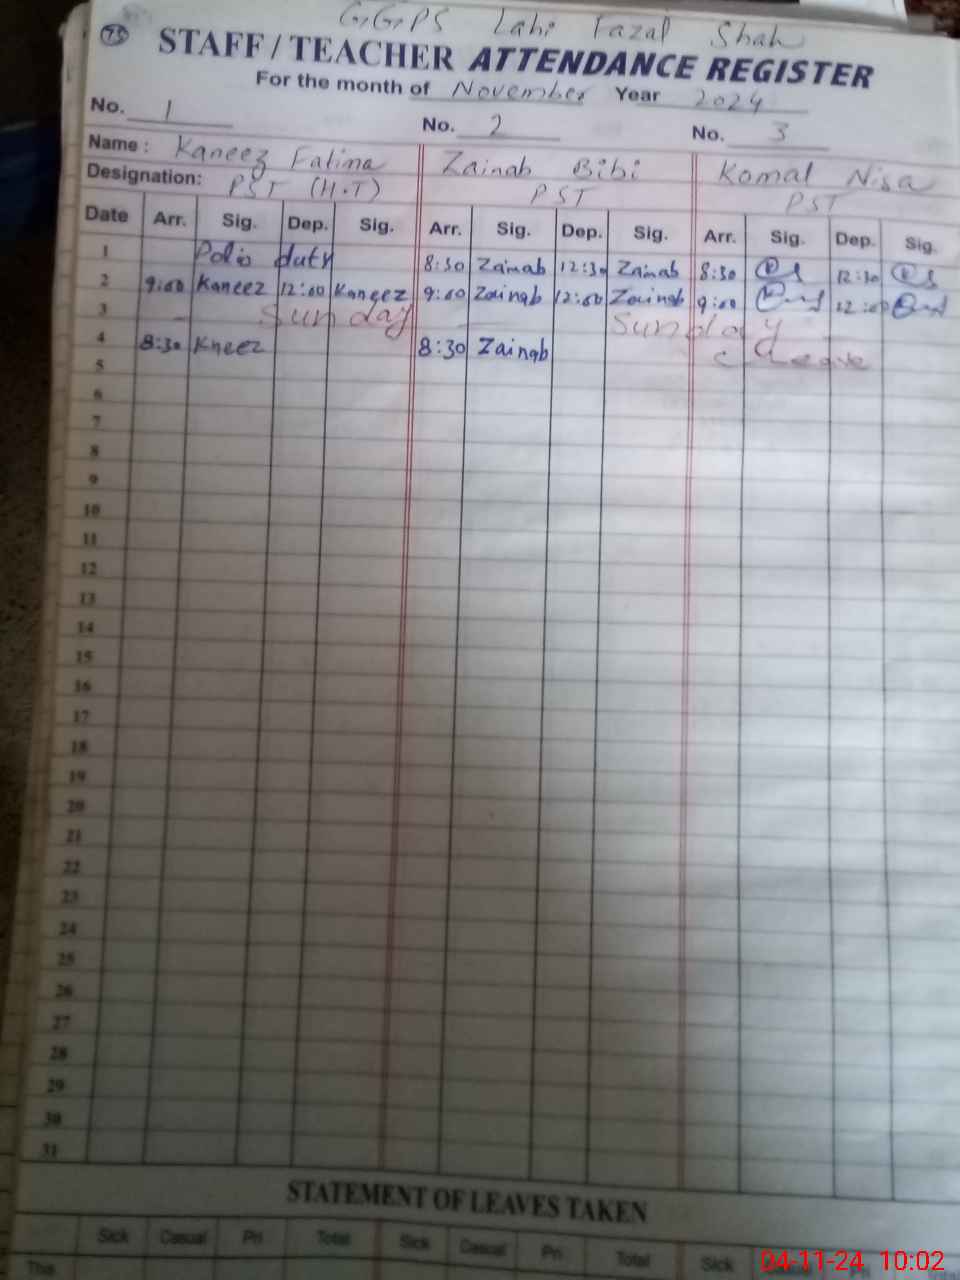 75
G.G.P.S Lahi Fazal Shah
STAFF / TEACHER ATTENDANCE REGISTER
For the month of November Year 2024
No. 1 No. 2 No. 3
Name : Kaneez Fatima Zainab Bibi Komal Nisa
Designation: PST (H.T) PST PST
Date Arr. Sig. Dep. Sig. Arr. Sig. Dep. Sig. Arr. Sig. Dep. Sig.
1 Polio duty 8:30 Zainab 12:30 Zainab 8:30 12:30
2 9:00 Kaneez 12:00 Kaneez 9:00 Zainab 12:00 Zainab 9:00 12:00
3 Sunday Sunday
4 8:30 Kneez 8:30 Zainab C Leave
5
6
7
8
9
10
11
12
13
14
15
16
17
18
19
20
21
22
23
24
25
26
27
28
29
30
31
STATEMENT OF LEAVES TAKEN
Sick Casual Pri Total Sick Casual Pri Total Sick
This
04-11-24 10:02